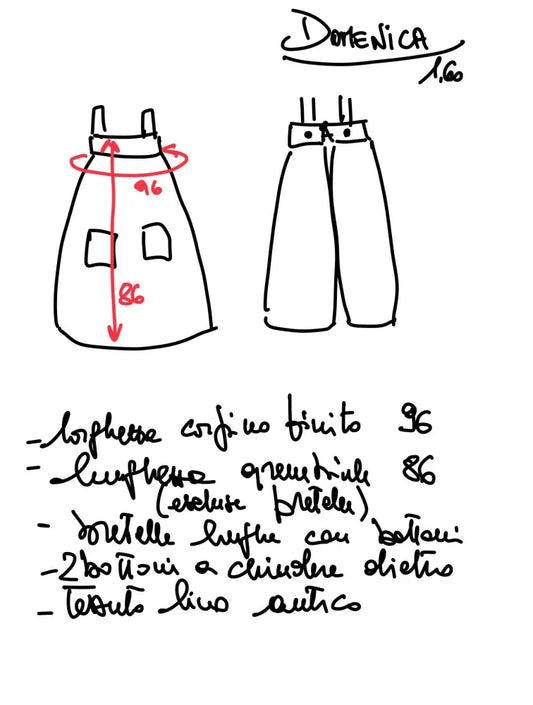 DOMENICA
1,60
96
86
A
- larghezza corpino finito 96
- lunghezza grembiule 86
(escluse bretelle)
- bretelle lunghe con bottoni
- 2 bottoni a chiudere dietro
- Tessuto lino antico